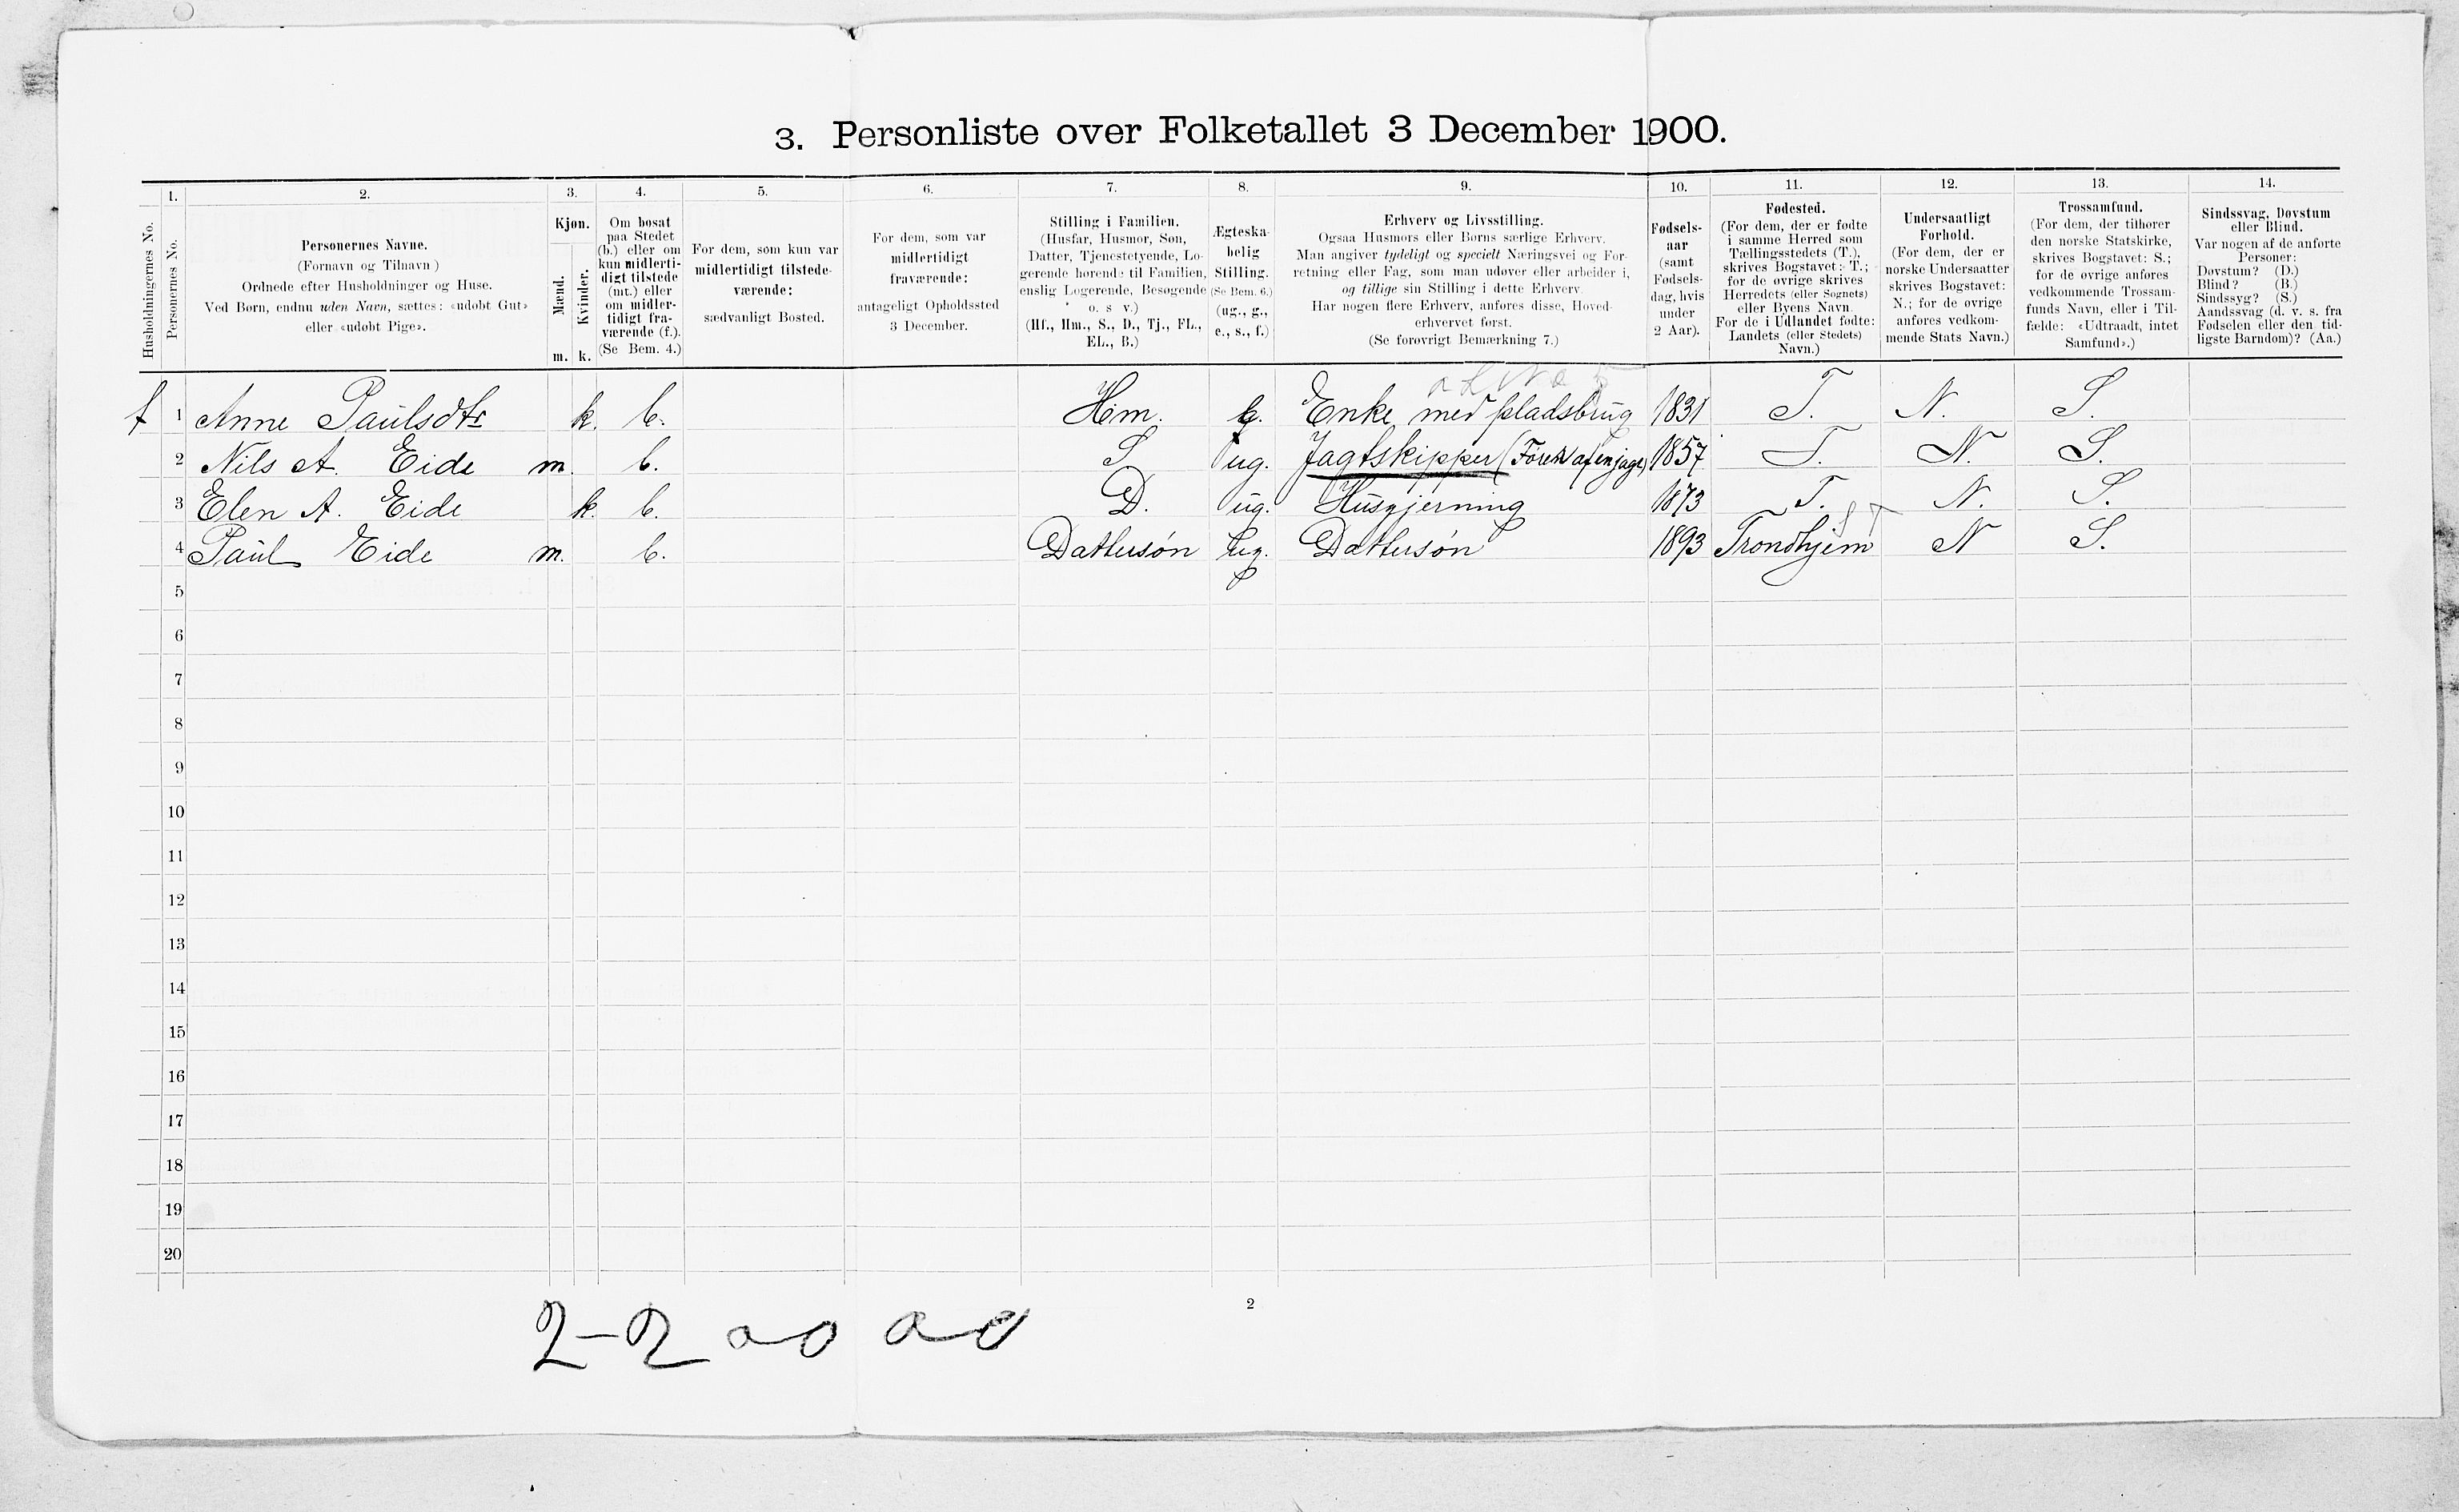 3. Personliste over Folketallet 3 December 1900.
1. 2. 3. 4. 5. 6. 7. 8. 9. 10. 11. 12. 13. 14.
Husholdningernes No.
Personernes No.
Personernes Navne.
(Fornavn og Tilnavn)
Ordnede efter Husholdninger og Huse.
Ved Børn, endnu uden Navn, sættes: «udøbt Gut»
eller «udøbt Pige».
Kjøn.
Mænd.
Kvinder.
m. k.
Om bosat
paa Stedet
(b.) eller om
kun midlerti-
digt tilstede
(mt.) eller
om midler-
tidigt fra-
værende (f.).
(Se Bem. 4.)
For dem, som kun var
midlertidigt tilstede-
værende:
sædvanligt Bosted.
For dem, som var
midlertidigt
fraværende:
antageligt Opholdssted
3 December.
Stilling i Familien.
(Husfar, Husmor, Søn,
Datter, Tjenestetyende, Lo-
gerende hørende til Familien,
enslig Logerende, Besøgende
o. s v.)
(Hf., Hm., S., D., Tj., FL.,
EL., B.)
Ægteska-
belig
Stilling.
(Se Bem. 6.)
(ug., g.,
e., s., f.)
Erhverv og Livsstilling.
Ogsaa Husmors eller Børns særlige Erhverv.
Man angiver tydeligt og specielt Næringsvei og For-
retning eller Fag, som man udøver eller arbeider i,
og tillige sin Stilling i dette Erhverv.
Har nogen flere Erhverv, anføres disse, Hoved-
erhvervet først.
(Se forøvrigt Bemærkning 7.)
Fødsels-
aar
(samt
Fødsels-
dag, hvis
under
2 Aar).
Fødested.
(For dem, der er fødte
i samme Herred som
Tællingsstedets (T.),
skrives Bogstavet: T.;
for de øvrige skrives
Herredets (eller Sognets)
eller Byens Navn.
For de i Udlandet fødte:
Landets (eller Stedets)
Navn.)
Undersaatligt
Forhold.
(For dem, der er
norske Undersaatter
skrives Bogstavet:
N.; for de øvrige
anføres vedkom-
mende Stats Navn.)
Trossamfund.
(For dem, der tilhører
den norske Statskirke,
skrives Bogstavet: S.;
for de øvrige anføres
vedkommende Trossam-
funds Navn, eller i Til-
fælde: «Udtraadt, intet
Samfund».)
Sindssvag, Døvstum
eller Blind.
Var nogen af de anførte
Personer:
Døvstum? (D.)
Blind? (B.)
Sindssyg? (S.)
Aandssvag (d. v. s. fra
Fødselen eller den tid-
ligste Barndom)? (Aa.)
1 Anne Paulsdtr k. b. Hm. Enke med pladsbrug 1831 T. N. S.
2 Nils A. Eide m. b. S ug. Jagtskipper (Förer af en jagt) 1857 T. N. S.
3 Elen A. Eide k. b. D. ug. Husgjerning 1873 T. N. S.
4 Paul Eide m. b. Dattersön ug. Dattersön 1893 Trondhjem N S.
5
6
7
8
9
10
11
12
13
14
15
16
17
18
19
20
2
2-2